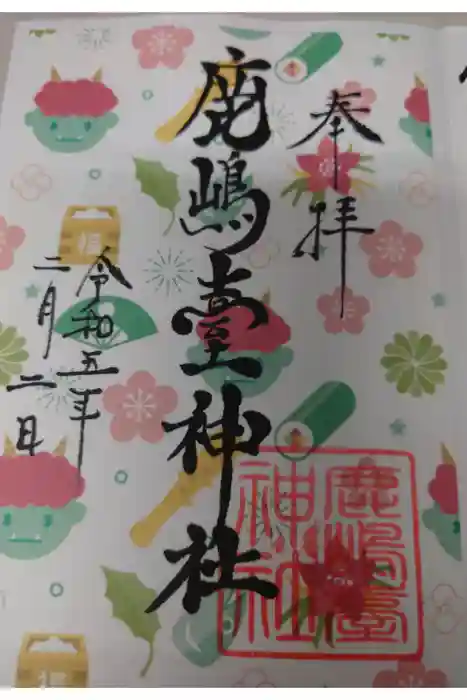 奉拝
鹿嶋臺神社
令和五年
二月二日
鹿嶋臺
神社
福